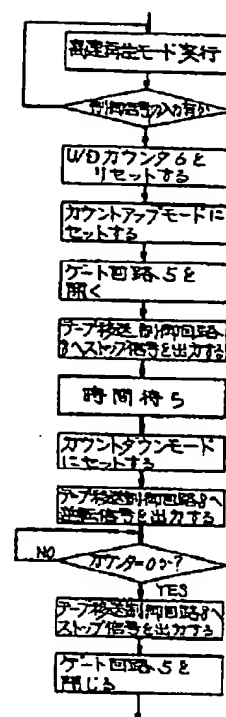 高速再生モード実行
制御信号の入力有か
U/Dカウンタ6を
リセットする
カウントアップモードに
セットする
ゲート回路5を
開く
テープ移送制御回路
8へストップ信号を出力する
時間待ち
カウントダウンモード
にセットする
テープ移送制御回路8へ
逆転信号を出力する
NO
カウンター=0か?
YES
テープ移送制御回路8へ
ストップ信号を出力する
ゲート回路5を
閉じる